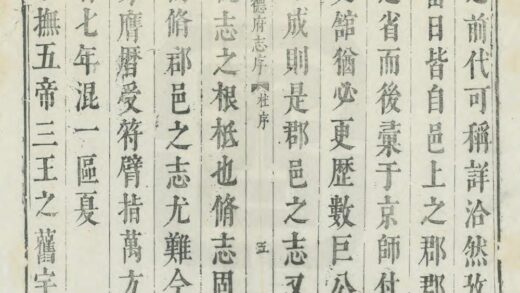 前代可稱詳洽然攷
當日皆自邑上之郡郡
之省而後彚于京師付
館猶必更歷數巨公
成則是郡邑之志又
德府志序 杜序 五
志之根柢也脩志固
脩郡邑之志尤難今
膺曆受符臂指萬方
七年混一區夏
撫五帝三王之舊宇